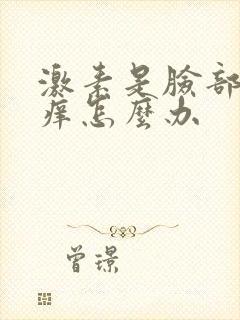 激素是臉部
痒怎麼办
曾璟